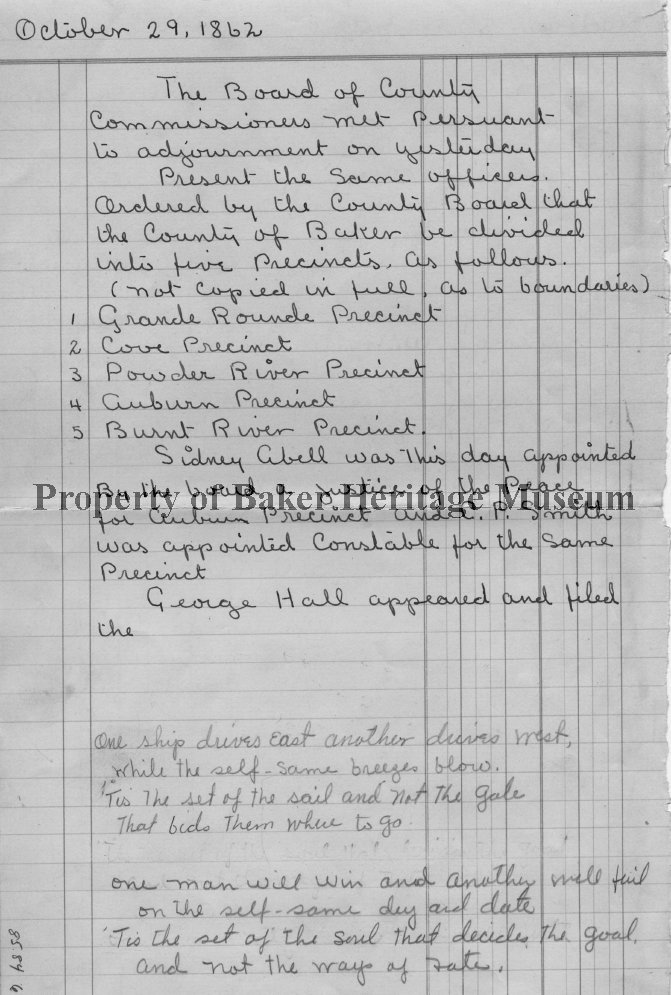 October 29, 1862
The Board of County
Commissioners met Persuant
to adjournment on yesterday
Present the Same officers.
Ordered by the County Board that
the County of Baker be divided
into five Precincts, as follows.
(not copied in full, as to boundaries)
1 Grande Rounde Precinct
2 Cove Precinct
3 Powder River Precinct
4 Auburn Precinct
5 Burnt River Precinct.
Sidney Abell was this day appointed
By the board a justice of the Peace
Property of Baker Heritage Museum
for Auburn Precinct and P. Smith
was appointed Constable for the Same
Precinct
George Hall appeared and filed
the
One ship drives east another drives west,
while the self-same breezes blow.
'Tis the set of the sail and not the gale
That bids them where to go.
one man will win and another will fail
on the self-same day and date
'Tis the set of the soul that decides the goal,
and not the ways of fate.